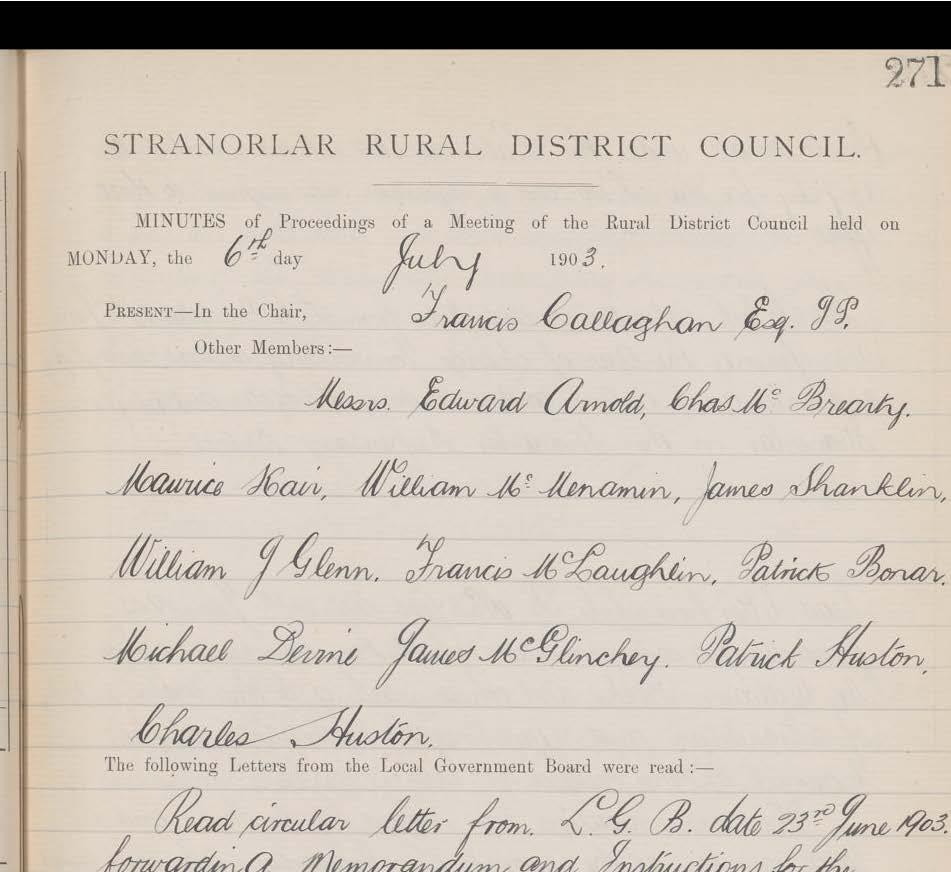 271
STRANORLAR RURAL DISTRICT COUNCIL.
MINUTES of Proceedings of a Meeting of the Rural District Council held on
MONDAY, the 6th day July 1903.
PRESENT—In the Chair, Francis Callaghan Esq. J.P.
Other Members:—
Messrs. Edward Arnold, Chas Mc Brearty.
Maurice Hair, William Mc Menamin, James Shanklin,
William J Glenn. Francis McLaughlin, Patrick Bonar.
Michael Devine James McGlinchey. Patrick Huston,
Charles Huston.
The following Letters from the Local Government Board were read:—
Read circular letter from. L. G. B. date 23rd June 1903.
forwarding Memorandum and Instructions for the